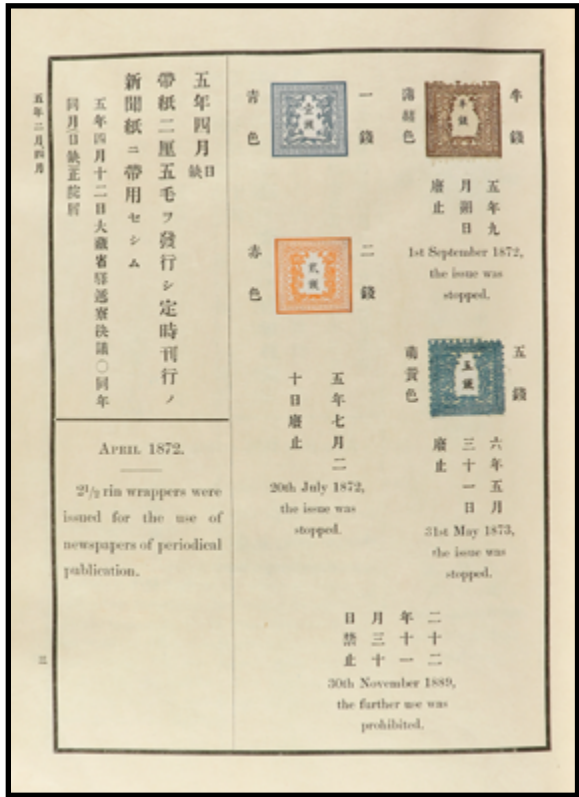 半錢
半錢
色
五年九
月朔日
廢止
1st September 1872,
the issue was
stopped.
五錢
五錢
萌黄色
六年五月
三十一日
廢止
31st May 1873,
the issue was
stopped.
一錢
壹錢
青色
二錢
貳錢
赤色
五年七月二
十日廢止
20th July 1872,
the issue was
stopped.
二十二
年十一
月三十
日禁止
30th November 1889,
the further use was
prohibited.
五年四月缺日
帶紙二厘五毛ヲ發行シ定時刊行ノ
新聞紙ニ帶用セシム
五年四月十二日大藏省驛遞寮決議〇同年
同月缺日正院屆
APRIL 1872.
2 1/2 rin wrappers were
issued for the use of
newspapers of periodical
publication.
五年二月四月
三